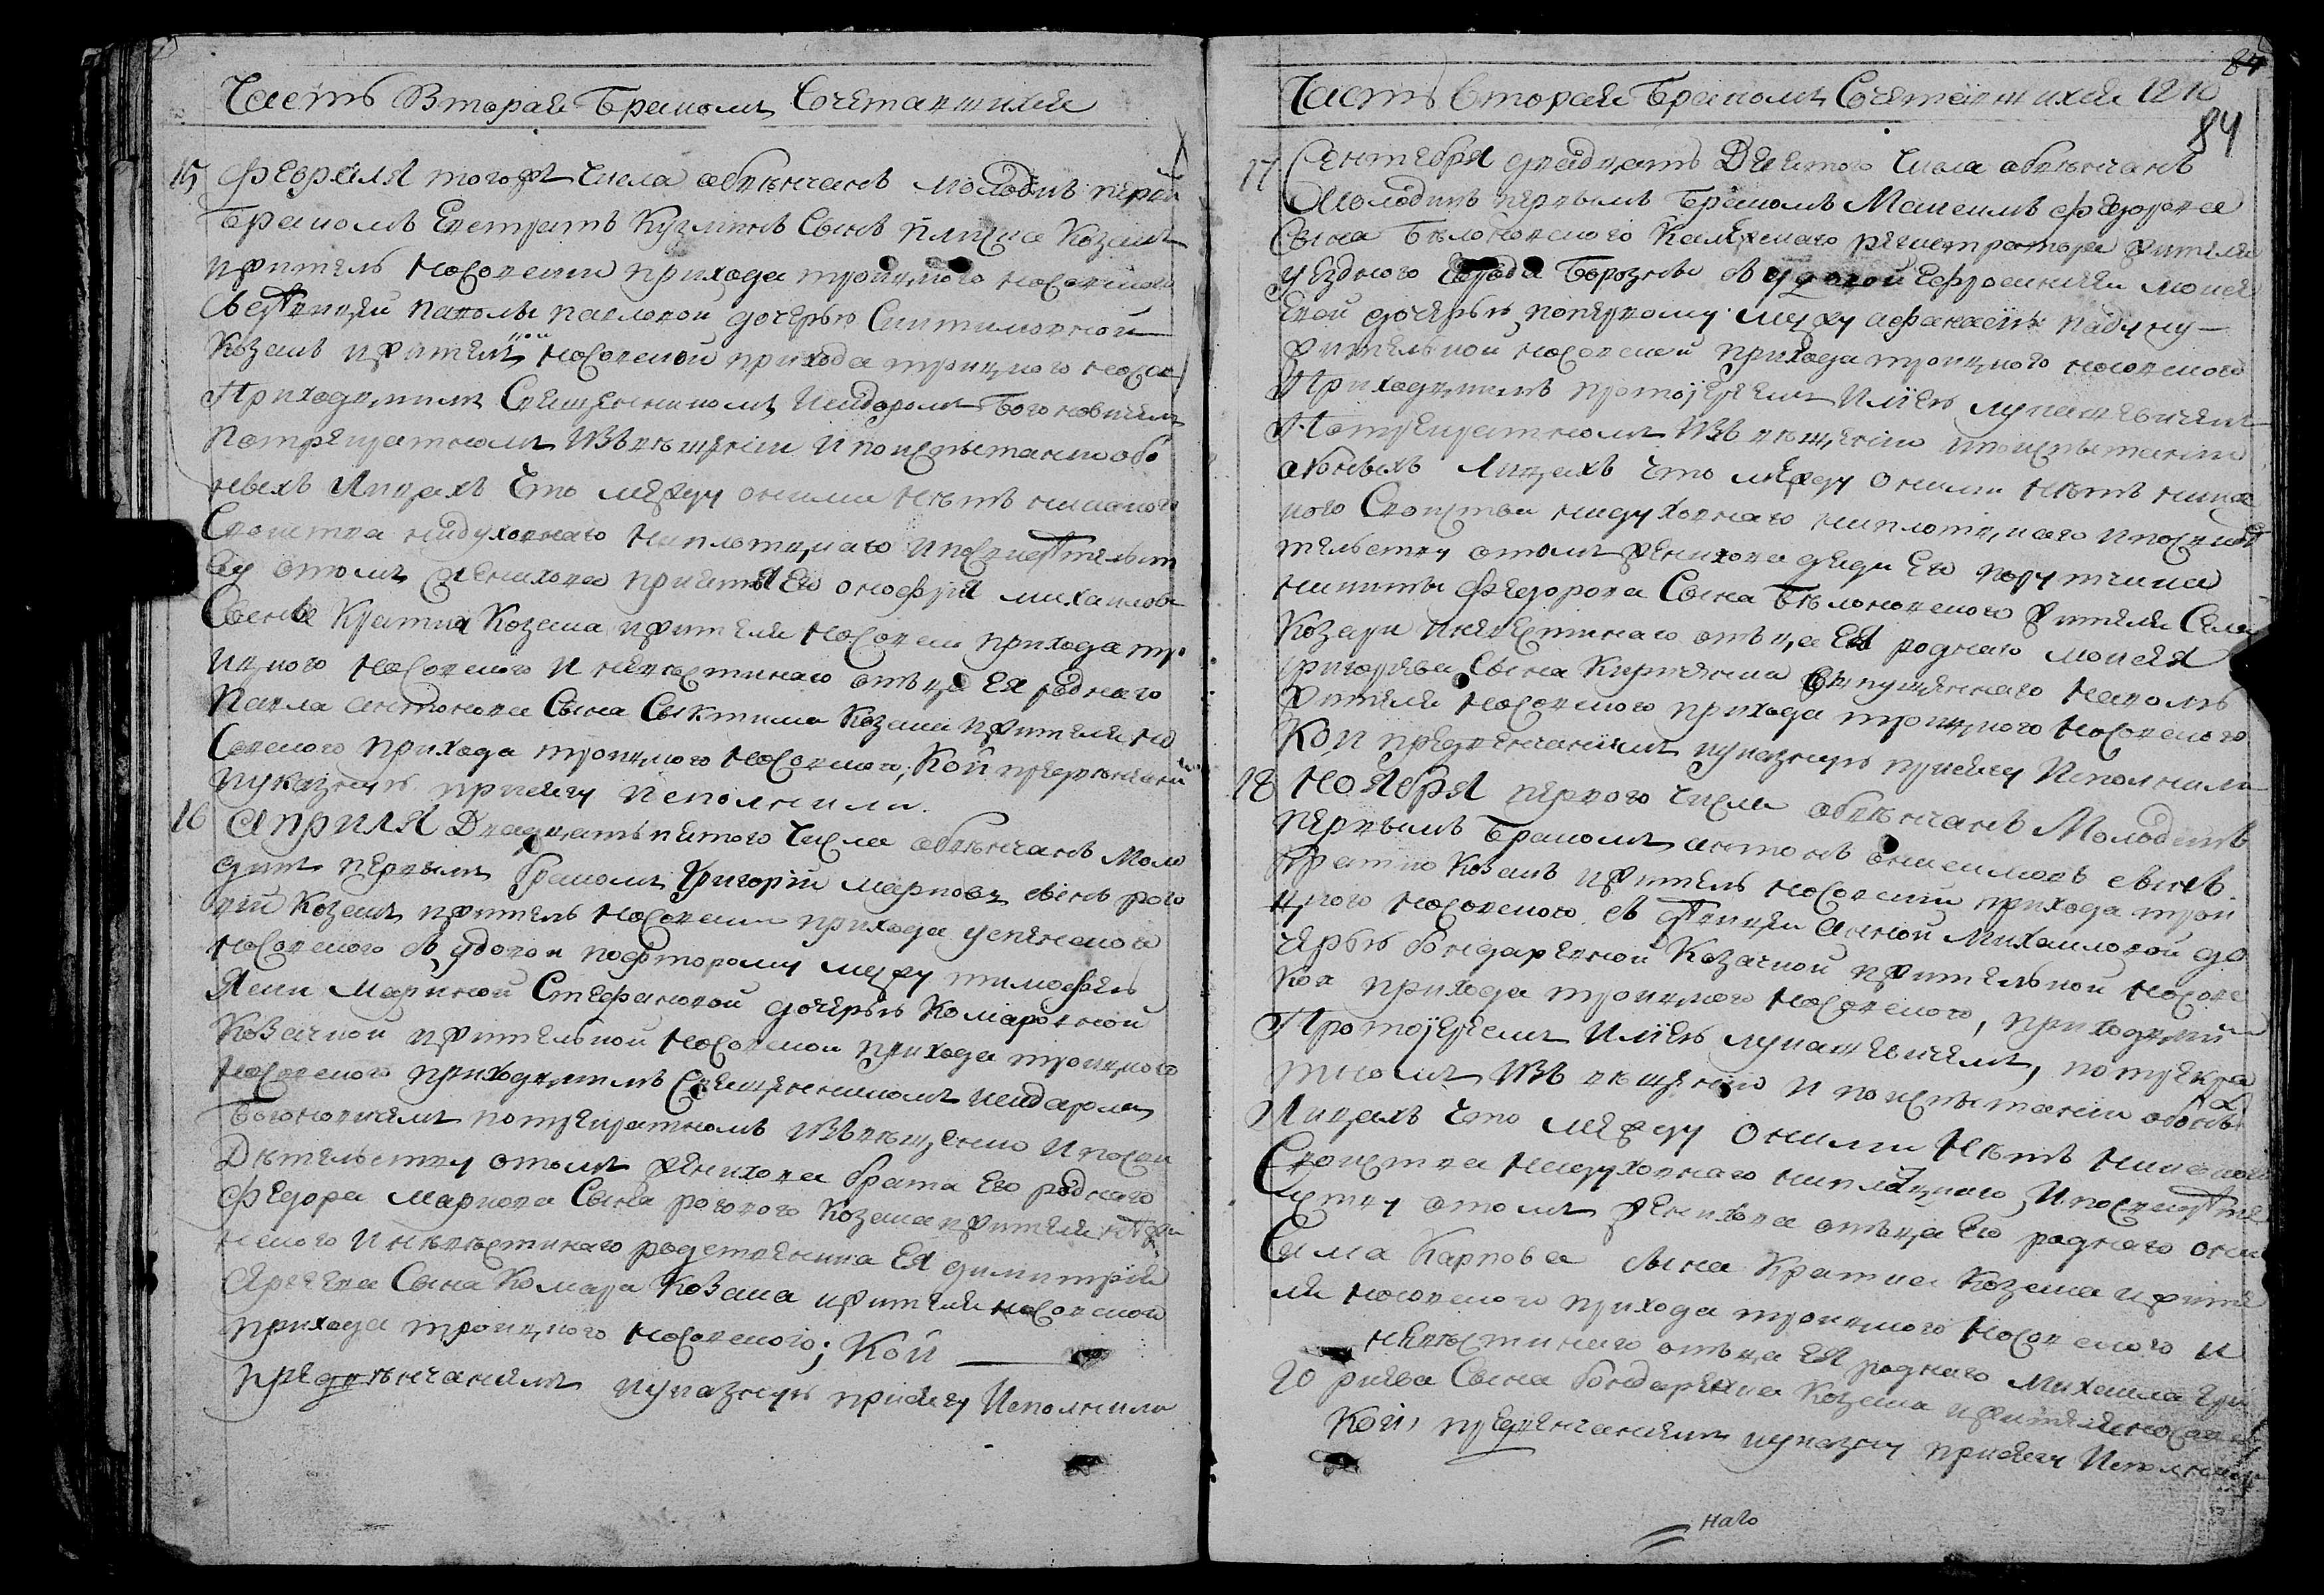 Часть Вторая Бракомъ Сочетавшихся
15 Февраля тогожъ Числа обвѣнчанъ молодикъ первы
Бракомъ Евстратъ Кузминъ Сынъ Козакъ
и житель Носовски прихода троицкого носовского
съ девицей Павловой дочерью
Козакъ и жител носовской прихода троицкого носов
Приходскимъ Священникомъ Исидоромъ Богоновичемъ
По троекратномъ извѣщеніи И по испытаніи обо
ныхъ Лицахъ Что между оными Нѣтъ никакого
Свойства нидуховнаго ни плотскаго и по свидетельст
ву отомъ женихова приятеля Его онофрия михаилова
Сына Кратка Козака и жителя Носовски прихода тро
ицкого Носовского И невѣстинаго отъца Ея роднаго
Павла антонова Сына Козака и жителя но
совского прихода троицкого Носовского, Кои предвѣнчанием
и указную присягу исполнили.
16 Априля Двадцать пятого Числа обвѣнчанъ Моло
дикъ первымъ бракомъ Григорій марковъ сынъ рого
вий Козакъ и житель Носовски прихода успенского
Носовского съ удовой по второму мужу тимофею
Мариной Стефановой дочерью Комаровной
Козачкой и жителькой Носовской прихода троицкого
Носовского приходскимъ Священникомъ исидоромъ
Богоновичемъ по троекратномъ извѣщению и по сви
Дѣтельству отомъ женихова брата Его роднаго
Федора маркова Сына рогового Козака и жителя носов
ского и невѣстинаго родственика Ея димитрия
Сына Комара Козака и жителя носовского
прихода троицкого Носовского; Кои
предвѣнчаниемъ и указную присягу Исполнили
Часть Вторая Бракомъ Сочетавшихся 1210
84
84
17 Сентября двадцать Девятого Числа обвѣнчанъ
Молодикъ первымъ Бракомъ Максимъ Федорова
Сына Бѣлоновского Колежскаго регистратора жителя
уездного города Борозны съ удовой Ефросиниеи моисе
евой дочерью, по первому мужу афанасию падуну
жителькой носовской прихода троицкого носовского
Приходскимъ протоіереемъ Иліею лукашевичемъ
По троекратномъ извѣщению и по испытанию
обоныхъ Лицахъ Что между оными Нѣтъ ника
кого Свойства нидуховнаго ни плотскаго и по свидѣ
тельству отомъ женихова дяди Его порутчика
никиты Федорова Сына Бѣлоновского жителя Села
Козари и невѣстинаго отъца Ея роднаго моисея
григорьева Сына отпущенного на волю
жителя Носовского прихода троицкого Носовского
Кои предвенчаниемъ и указную присягу Исполнили
18 Ноября первого Числа обвѣнчанъ Молодикъ
первымъ Бракомъ антонъ онисимовъ сынъ
Кратко Козакъ и житель Носовски прихода трои
цкого Носовского съ девицею Анной Михаиловой до
черью Бондаревной Козачкой и жителькой Носовс
кой прихода троицкого Носовского, приходскимъ
Протоіереемъ Иліею лукашевичемъ, по трекра
тномъ извѣщенію и по испытаніи обоныхъ
Лицахъ Что между оными Нѣтъ никакого
Свойства нидуховнаго ни плотскаго, и по свидете
льству отомъ женихова отьца Его роднаго они
сима Карпова сына Кратка Козака и жите
ля носовского прихода троицкого Носовского и
невѣстинаго отъца Ея роднаго Михаила Гри
20 риева Сына Бондаренка Козака и жителя носовск
Кои, предвенчаниемъ и указну присягу Исполнили
наго